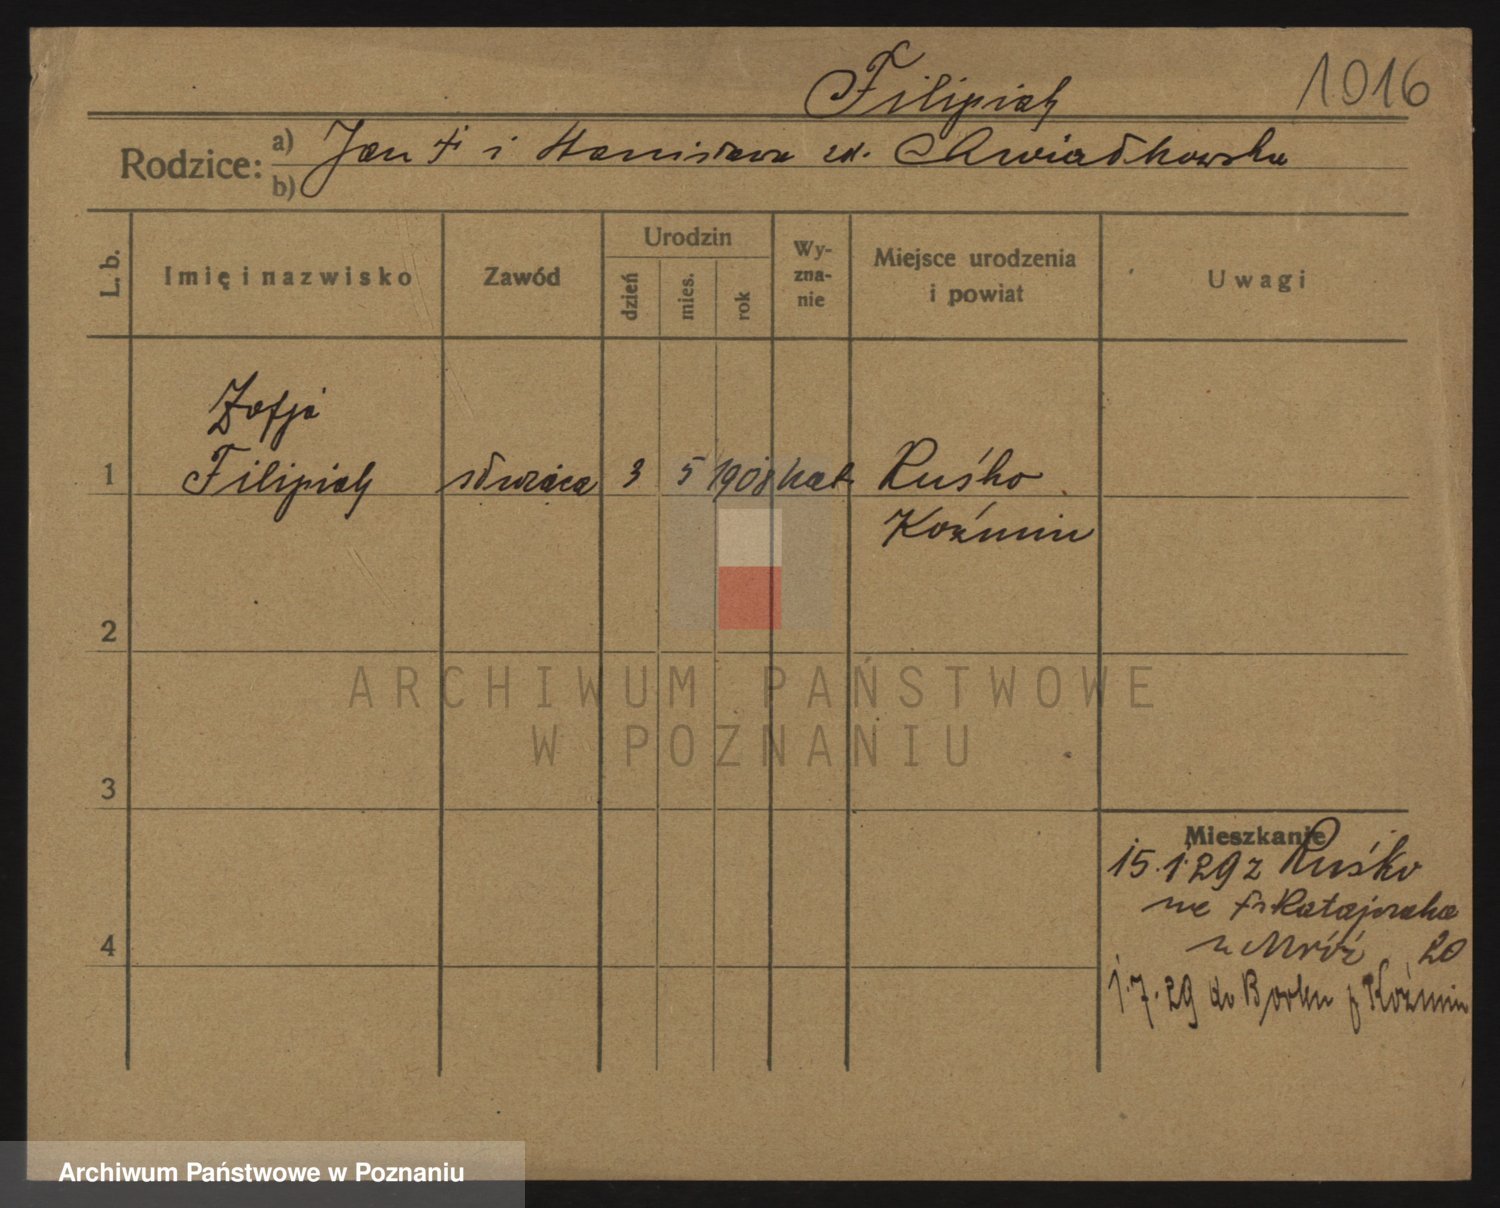 Filipiak
1016
Rodzice:
a) Jan F i Stanisława zd. Chwiałkowska
b)
L. b.
Imię i nazwisko
Zawód
Urodzin
dzień
mies.
rok
Wy-
zna-
nie
Miejsce urodzenia
i powiat
Uwagi
Zofja
1 Filipiak służąca 3 5 1908 kat. Ruśko
Koźmin
2
ARCHIWUM PAŃSTWOWE
W POZNANIU
3
Mieszkanie
15.1.29 z Ruśko
Ratajczaka
u Mróz 20
4
1.7.29 do Borku p Koźmin
Archiwum Państwowe w Poznaniu